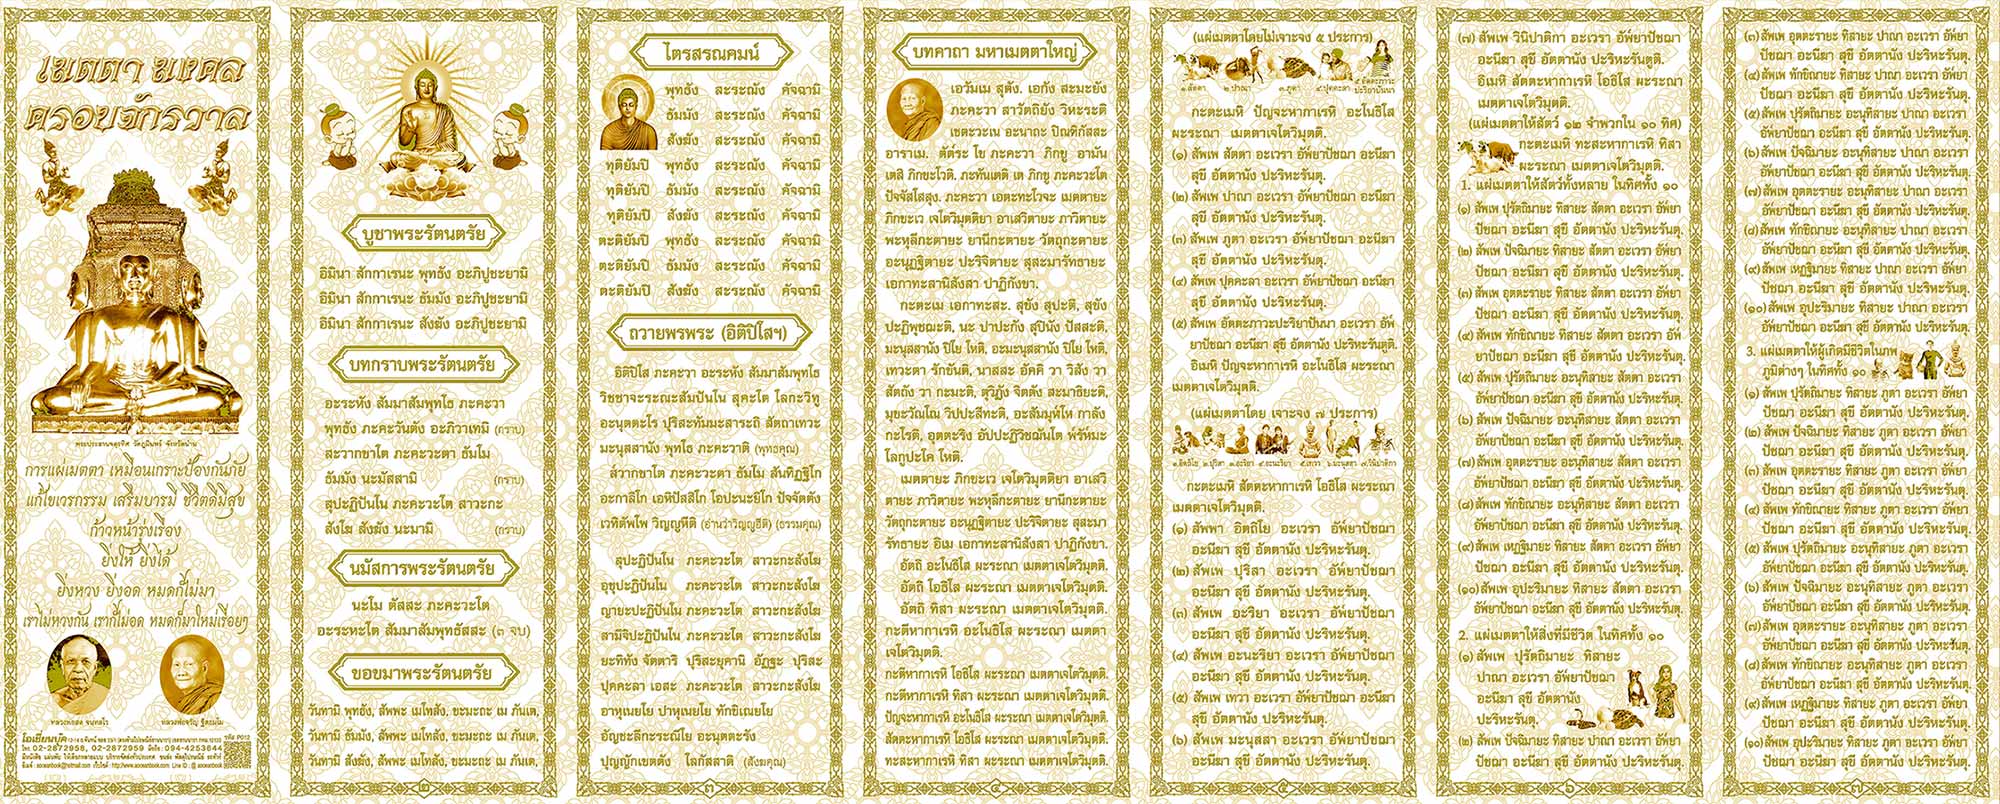 เมตตา มงคล
ครอบจักรวาล
พระประธานจตุรทิศ วัดภูมินทร์ จังหวัดน่าน
การแผ่เมตตา เหมือนเกราะป้องกันภัย
แก้ไขเวรกรรม เสริมบารมี ชีวิตดีมีสุข
ก้าวหน้ารุ่งเรือง
ยิ่งให้ ยิ่งได้
ยิ่งหวง ยิ่งอด หมดก็ไม่มา
เราไม่หวงกัน เราก็ไม่อด หมดก็มาใหม่เรื่อยๆ
หลวงพ่อจรัญ ฐิตธมฺโม
โทร. 02-2872958, 02-2872959 มือถือ : 094-4253644
รหัส P012
บูชาพระรัตนตรัย
อิมินา สักกาเรนะ พุทธัง อะภิปูชะยามิ
อิมินา สักกาเรนะ ธัมมัง อะภิปูชะยามิ
อิมินา สักกาเรนะ สังฆัง อะภิปูชะยามิ
บทกราบพระรัตนตรัย
อะระหัง สัมมาสัมพุทโธ ภะคะวา
พุทธัง ภะคะวันตัง อะภิวาเทมิ (กราบ)
สะวากขาโต ภะคะวะตา ธัมโม
ธัมมัง นะมัสสามิ (กราบ)
สุปะฏิปันโน ภะคะวะโต สาวะกะ
สังโฆ สังฆัง นะมามิ (กราบ)
นมัสการพระรัตนตรัย
นะโม ตัสสะ ภะคะวะโต
อะระหะโต สัมมาสัมพุทธัสสะ (๓ จบ)
ขอขมาพระรัตนตรัย
วันทามิ พุทธัง, สัพพะ เมโทสัง, ขะมะถะ เม ภันเต,
วันทามิ ธัมมัง, สัพพะ เมโทสัง, ขะมะถะ เม ภันเต,
วันทามิ สังฆัง, สัพพะ เมโทสัง, ขะมะถะ เม ภันเต,
๒
ไตรสรณคมน์
พุทธัง สะระณัง คัจฉามิ
ธัมมัง สะระณัง คัจฉามิ
สังฆัง สะระณัง คัจฉามิ
ทุติยัมปิ พุทธัง สะระณัง คัจฉามิ
ทุติยัมปิ ธัมมัง สะระณัง คัจฉามิ
ทุติยัมปิ สังฆัง สะระณัง คัจฉามิ
ตะติยัมปิ พุทธัง สะระณัง คัจฉามิ
ตะติยัมปิ ธัมมัง สะระณัง คัจฉามิ
ตะติยัมปิ สังฆัง สะระณัง คัจฉามิ
ถวายพรพระ (อิติปิโสฯ)
อิติปิโส ภะคะวา อะระหัง สัมมาสัมพุทโธ
วิชชาจะระณะสัมปันโน สุคะโต โลกะวิทู
อะนุตตะโร ปุริสะทัมมะสาระถิ สัตถาเทวะ
มะนุสสานัง พุทโธ ภะคะวาติ (พุทธคุณ)
ส๎วากขาโต ภะคะวะตา ธัมโม สันทิฏฐิโก
อะกาลิโก เอหิปัสสิโก โอปะนะยิโก ปัจจัตตัง
เวทิตัพโพ วิญญูหีติ (อ่านว่าวิญญูฮีติ) (ธรรมคุณ)
สุปะฏิปันโน ภะคะวะโต สาวะกะสังโฆ
อุชุปะฏิปันโน ภะคะวะโต สาวะกะสังโฆ
ญายะปะฏิปันโน ภะคะวะโต สาวะกะสังโฆ
สามีจิปะฏิปันโน ภะคะวะโต สาวะกะสังโฆ
ยะทิทัง จัตตาริ ปุริสะยุคานิ อัฏฐะ ปุริสะ
ปุคคะลา เอสะ ภะคะวะโต สาวะกะสังโฆ
อาหุเนยโย ปาหุเนยโย ทักขิเณยโย
อัญชะลีกะระณีโย อะนุตตะรัง
ปุญญักเขตตัง โลกัสสาติ (สังฆคุณ)
๓
บทคาถา มหาเมตตาใหญ่
เอวัมเม สุตัง. เอกัง สะมะยัง
ภะคะวา สาวัตถิยัง วิหะระติ
เชตะวะเน อะนาถะ ปิณฑิกัสสะ
อาราเม. ตัต๎ระ โข ภะคะวา ภิกขู อามัน
เตสิ ภิกขะโวติ. ภะทันเตติ เต ภิกขู ภะคะวะโต
ปัจจัสโสสุง. ภะคะวา เอตะทะโวจะ เมตตายะ
ภิกขะเว เจโตวิมุตติยา อาเสวิตายะ ภาวิตายะ
พะหุลีกะตายะ ยานีกะตายะ วัตถุกะตายะ
อะนุฏฐิตายะ ปะริจิตายะ สุสะมารัทธายะ
เอกาทะสานิสังสา ปาฏิกังขา.
กะตะเม เอกาทะสะ. สุขัง สุปะติ, สุขัง
ปะฏิพุชฌะติ, นะ ปาปะกัง สุปินัง ปัสสะติ,
มะนุสสานัง ปิโย โหติ, อะมะนุสสานัง ปิโย โหติ,
เทวะตา รักขันติ, นาสสะ อัคคิ วา วิสัง วา
สัตถัง วา กะมะติ, ตุวิฏัง จิตตัง สะมาธิยะติ,
มุขะวัณโณ วิปปะสีทะติ, อะสัมมุฬ์โห กาลัง
กะโรติ, อุตตะริง อัปปะฏิวิชฌันโต พ๎รัห๎มะ
โลกูปะโค โหติ.
เมตตายะ ภิกขะเว เจโตวิมุตติยา อาเสวิ
ตายะ ภาวิตายะ พะหุลีกะตายะ ยานีกะตายะ
วัตถุกะตายะ อะนุฏฐิตายะ ปะริจิตายะ สุสะมา
รัทธายะ อิเม เอกาทะสานิสังสา ปาฏิกังขา.
อัตถิ อะโนธิโส ผะระณา เมตตาเจโตวิมุตติ.
อัตถิ โอธิโส ผะระณา เมตตาเจโตวิมุตติ.
อัตถิ ทิสา ผะระณา เมตตาเจโตวิมุตติ.
กะตีหากาเรหิ อะโนธิโส ผะระณา เมตตา
เจโตวิมุตติ.
กะตีหากาเรหิ โอธิโส ผะระณา เมตตาเจโตวิมุตติ.
กะตีหากาเรหิ ทิสา ผะระณา เมตตาเจโตวิมุตติ.
ปัญจะหากาเรหิ อะโนธิโส ผะระณา เมตตาเจโตวิมุตติ.
สัตตะหากาเรหิ โอธิโส ผะระณา เมตตาเจโตวิมุตติ.
ทะสะหากาเรหิ ทิสา ผะระณา เมตตาเจโตวิมุตติ.
๔
(แผ่เมตตาโดยไม่เจาะจง ๕ ประการ)
๑.สัตตา ๒.ปาณา ๓.ภูตา ๔.ปุคคะลา ๕.อัตตะภาวะปะริยาปันนา
กะตะเมหิ ปัญจะหากาเรหิ อะโนธิโส
ผะระณา เมตตาเจโตวิมุตติ.
(๑) สัพเพ สัตตา อะเวรา อัพ๎ยาปัชฌา อะนีฆา
สุขี อัตตานัง ปะริหะรันตุ.
(๒) สัพเพ ปาณา อะเวรา อัพ๎ยาปัชฌา อะนีฆา
สุขี อัตตานัง ปะริหะรันตุ.
(๓) สัพเพ ภูตา อะเวรา อัพ๎ยาปัชฌา อะนีฆา
สุขี อัตตานัง ปะริหะรันตุ.
(๔) สัพเพ ปุคคะลา อะเวรา อัพ๎ยาปัชฌา อะนีฆา
สุขี อัตตานัง ปะริหะรันตุ.
(๕) สัพเพ อัตตะภาวะปะริยาปันนา อะเวรา อัพ๎
ยาปัชฌา อะนีฆา สุขี อัตตานัง ปะริหะรันตูติ.
อิเมหิ ปัญจะหากาเรหิ อะโนธิโส ผะระณา
เมตตาเจโตวิมุตติ.
(แผ่เมตตาโดย เจาะจง ๗ ประการ)
๑.อิตถิโย ๒.ปุริสา ๓.อะริยา ๔.อะนะริยา ๕.เทวา ๖.มะนุสสา ๗.วินิปาติกา
กะตะเมหิ สัตตะหากาเรหิ โอธิโส ผะระณา
เมตตาเจโตวิมุตติ.
(๑) สัพพา อิตถิโย อะเวรา อัพ๎ยาปัชฌา
อะนีฆา สุขี อัตตานัง ปะริหะรันตุ.
(๒) สัพเพ ปุริสา อะเวรา อัพ๎ยาปัชฌา
อะนีฆา สุขี อัตตานัง ปะริหะรันตุ.
(๓) สัพเพ อะริยา อะเวรา อัพ๎ยาปัชฌา
อะนีฆา สุขี อัตตานัง ปะริหะรันตุ.
(๔) สัพเพ อะนะริยา อะเวรา อัพ๎ยาปัชฌา
อะนีฆา สุขี อัตตานัง ปะริหะรันตุ.
(๕) สัพเพ เทวา อะเวรา อัพ๎ยาปัชฌา อะนีฆา
สุขี อัตตานัง ปะริหะรันตุ.
(๖) สัพเพ มะนุสสา อะเวรา อัพ๎ยาปัชฌา
อะนีฆา สุขี อัตตานัง ปะริหะรันตุ.
๕
(๗) สัพเพ วินิปาติกา อะเวรา อัพ๎ยาปัชฌา
อะนีฆา สุขี อัตตานัง ปะริหะรันตูติ.
อิเมหิ สัตตะหากาเรหิ โอธิโส ผะระณา
เมตตาเจโตวิมุตติ.
(แผ่เมตตาให้สัตว์ ๑๒ จำพวกใน ๑๐ ทิศ)
กะตะเมหิ ทะสะหากาเรหิ ทิสา
ผะระณา เมตตาเจโตวิมุตติ.
1. แผ่เมตตาให้สัตว์ทั้งหลาย ในทิศทั้ง ๑๐
(๑) สัพเพ ปุรัตถิมายะ ทิสายะ สัตตา อะเวรา อัพ๎ยา
ปัชฌา อะนีฆา สุขี อัตตานัง ปะริหะรันตุ.
(๒) สัพเพ ปัจฉิมายะ ทิสายะ สัตตา อะเวรา อัพ๎ยา
ปัชฌา อะนีฆา สุขี อัตตานัง ปะริหะรันตุ.
(๓) สัพเพ อุตตะรายะ ทิสายะ สัตตา อะเวรา อัพ๎ยา
ปัชฌา อะนีฆา สุขี อัตตานัง ปะริหะรันตุ.
(๔) สัพเพ ทักขิณายะ ทิสายะ สัตตา อะเวรา อัพ๎
ยาปัชฌา อะนีฆา สุขี อัตตานัง ปะริหะรันตุ.
(๕) สัพเพ ปุรัตถิมายะ อะนุทิสายะ สัตตา อะเวรา
อัพ๎ยาปัชฌา อะนีฆา สุขี อัตตานัง ปะริหะรันตุ.
(๖) สัพเพ ปัจฉิมายะ อะนุทิสายะ สัตตา อะเวรา
อัพ๎ยาปัชฌา อะนีฆา สุขี อัตตานัง ปะริหะรันตุ.
(๗) สัพเพ อุตตะรายะ อะนุทิสายะ สัตตา อะเวรา
อัพ๎ยาปัชฌา อะนีฆา สุขี อัตตานัง ปะริหะรันตุ.
(๘) สัพเพ ทักขิณายะ อะนุทิสายะ สัตตา อะเวรา
อัพ๎ยาปัชฌา อะนีฆา สุขี อัตตานัง ปะริหะรันตุ.
(๙) สัพเพ เหฏฐิมายะ ทิสายะ สัตตา อะเวรา อัพ๎ยา
ปัชฌา อะนีฆา สุขี อัตตานัง ปะริหะรันตุ.
(๑๐) สัพเพ อุปะริมายะ ทิสายะ สัตตา อะเวรา
อัพ๎ยาปัชฌา อะนีฆา สุขี อัตตานัง ปะริหะรันตุ.
2. แผ่เมตตาให้สิ่งที่มีชีวิต ในทิศทั้ง ๑๐
(๑) สัพเพ ปุรัตถิมายะ ทิสายะ
ปาณา อะเวรา อัพ๎ยาปัชฌา
อะนีฆา สุขี อัตตานัง
ปะริหะรันตุ.
(๒) สัพเพ ปัจฉิมายะ ทิสายะ ปาณา อะเวรา อัพ๎ยา
ปัชฌา อะนีฆา สุขี อัตตานัง ปะริหะรันตุ.
๖
(๓) สัพเพ อุตตะรายะ ทิสายะ ปาณา อะเวรา อัพ๎ยา
ปัชฌา อะนีฆา สุขี อัตตานัง ปะริหะรันตุ.
(๔) สัพเพ ทักขิณายะ ทิสายะ ปาณา อะเวรา อัพ๎ยา
ปัชฌา อะนีฆา สุขี อัตตานัง ปะริหะรันตุ.
(๕) สัพเพ ปุรัตถิมายะ อะนุทิสายะ ปาณา อะเวรา
อัพ๎ยาปัชฌา อะนีฆา สุขี อัตตานัง ปะริหะรันตุ.
(๖) สัพเพ ปัจฉิมายะ อะนุทิสายะ ปาณา อะเวรา
อัพ๎ยาปัชฌา อะนีฆา สุขี อัตตานัง ปะริหะรันตุ.
(๗) สัพเพ อุตตะรายะ อะนุทิสายะ ปาณา อะเวรา
อัพ๎ยาปัชฌา อะนีฆา สุขี อัตตานัง ปะริหะรันตุ.
(๘) สัพเพ ทักขิณายะ อะนุทิสายะ ปาณา อะเวรา
อัพ๎ยาปัชฌา อะนีฆา สุขี อัตตานัง ปะริหะรันตุ.
(๙) สัพเพ เหฏฐิมายะ ทิสายะ ปาณา อะเวรา อัพ๎ยา
ปัชฌา อะนีฆา สุขี อัตตานัง ปะริหะรันตุ.
(๑๐) สัพเพ อุปะริมายะ ทิสายะ ปาณา อะเวรา
อัพ๎ยาปัชฌา อะนีฆา สุขี อัตตานัง ปะริหะรันตุ.
3. แผ่เมตตาให้ผู้เกิดมีชีวิตในภพ
ภูมิต่างๆ ในทิศทั้ง ๑๐
(๑) สัพเพ ปุรัตถิมายะ ทิสายะ ภูตา อะเวรา อัพ๎ยา
ปัชฌา อะนีฆา สุขี อัตตานัง ปะริหะรันตุ.
(๒) สัพเพ ปัจฉิมายะ ทิสายะ ภูตา อะเวรา อัพ๎ยา
ปัชฌา อะนีฆา สุขี อัตตานัง ปะริหะรันตุ.
(๓) สัพเพ อุตตะรายะ ทิสายะ ภูตา อะเวรา อัพ๎ยา
ปัชฌา อะนีฆา สุขี อัตตานัง ปะริหะรันตุ.
(๔) สัพเพ ทักขิณายะ ทิสายะ ภูตา อะเวรา อัพ๎ยา
ปัชฌา อะนีฆา สุขี อัตตานัง ปะริหะรันตุ.
(๕) สัพเพ ปุรัตถิมายะ อะนุทิสายะ ภูตา อะเวรา
อัพ๎ยาปัชฌา อะนีฆา สุขี อัตตานัง ปะริหะรันตุ.
(๖) สัพเพ ปัจฉิมายะ อะนุทิสายะ ภูตา อะเวรา
อัพ๎ยาปัชฌา อะนีฆา สุขี อัตตานัง ปะริหะรันตุ.
(๗) สัพเพ อุตตะรายะ อะนุทิสายะ ภูตา อะเวรา
อัพ๎ยาปัชฌา อะนีฆา สุขี อัตตานัง ปะริหะรันตุ.
(๘) สัพเพ ทักขิณายะ อะนุทิสายะ ภูตา อะเวรา
อัพ๎ยาปัชฌา อะนีฆา สุขี อัตตานัง ปะริหะรันตุ.
(๙) สัพเพ เหฏฐิมายะ ทิสายะ ภูตา อะเวรา อัพ๎ยา
ปัชฌา อะนีฆา สุขี อัตตานัง ปะริหะรันตุ.
(๑๐) สัพเพ อุปะริมายะ ทิสายะ ภูตา อะเวรา อัพ๎ยา
ปัชฌา อะนีฆา สุขี อัตตานัง ปะริหะรันตุ.
๗